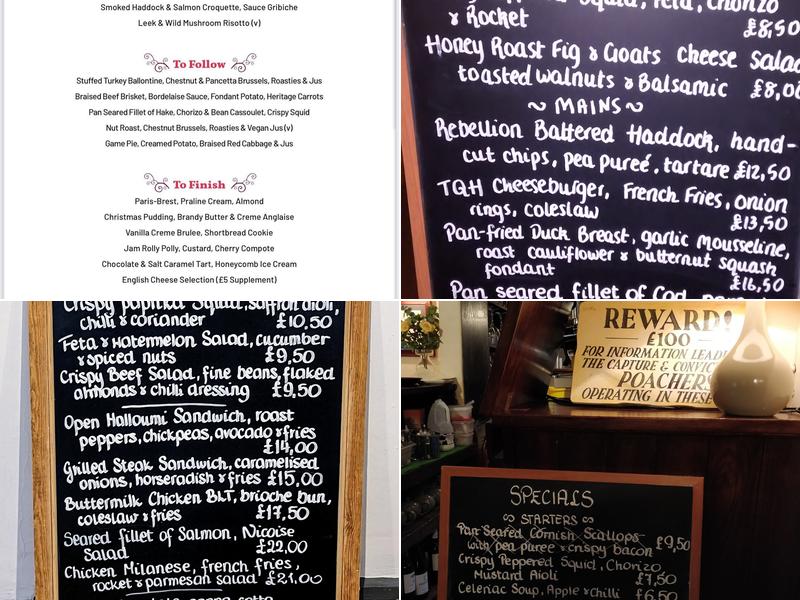 Smoked Haddock & Salmon Croquette, Sauce Gribiche
Leek & Wild Mushroom Risotto (v)
To Follow
Stuffed Turkey Ballontine, Chestnut & Pancetta Brussels, Roasties & Jus
Braised Beef Brisket, Bordelaise Sauce, Fondant Potato, Heritage Carrots
Pan Seared Fillet of Hake, Chorizo & Bean Cassoulet, Crispy Squid
Nut Roast, Chestnut Brussels, Roasties & Vegan Jus (v)
Game Pie, Creamed Potato, Braised Red Cabbage & Jus
To Finish
Paris-Brest, Praline Cream, Almond
Christmas Pudding, Brandy Butter & Creme Anglaise
Vanilla Creme Brulee, Shortbread Cookie
Jam Rolly Polly, Custard, Cherry Compote
Chocolate & Salt Caramel Tart, Honeycomb Ice Cream
English Cheese Selection (£5 Supplement)
Squid, Feta, Chorizo
& Rocket £8,50
Honey Roast Fig & Goats Cheese Salad
toasted walnuts & Balsamic £8,00
~ MAINS ~
Rebellion Battered Haddock, hand-
cut chips, pea pureé, tartare £12,50
TQH Cheeseburger, French Fries, onion
rings, coleslaw £13,50
Pan-fried Duck Breast, garlic mousseline,
roast cauliflower & butternut squash
fondant £16,50
Pan seared fillet of Cod
Crispy Paprika Squid, saffron aioli,
chilli & coriander £10,50
Feta & Watermelon Salad, cucumber
& spiced nuts £9,50
Crispy Beef Salad, fine beans, flaked
almonds & chilli dressing £9,50
Open Halloumi Sandwich, roast
peppers, chickpeas, avocado & fries
£14,00
Grilled Steak Sandwich, caramelised
onions, horseradish & fries £15,00
Buttermilk Chicken BLT, brioche bun,
coleslaw & fries £17,50
Seared fillet of Salmon, Nicoise
Salad £22,00
Chicken Milanese, french fries,
rocket & parmesan salad £21,00
REWARD!
£100
FOR INFORMATION LEADI
THE CAPTURE & CONVIC
POACHERS
OPERATING IN THESE
SPECIALS
STARTERS
Pan Seared Cornish Scallops £9,50
with pea puree & crispy bacon
Crispy Peppered Squid, Chorizo
Mustard Aioli £7,50
Celeriac Soup, Apple & Chilli £6,50